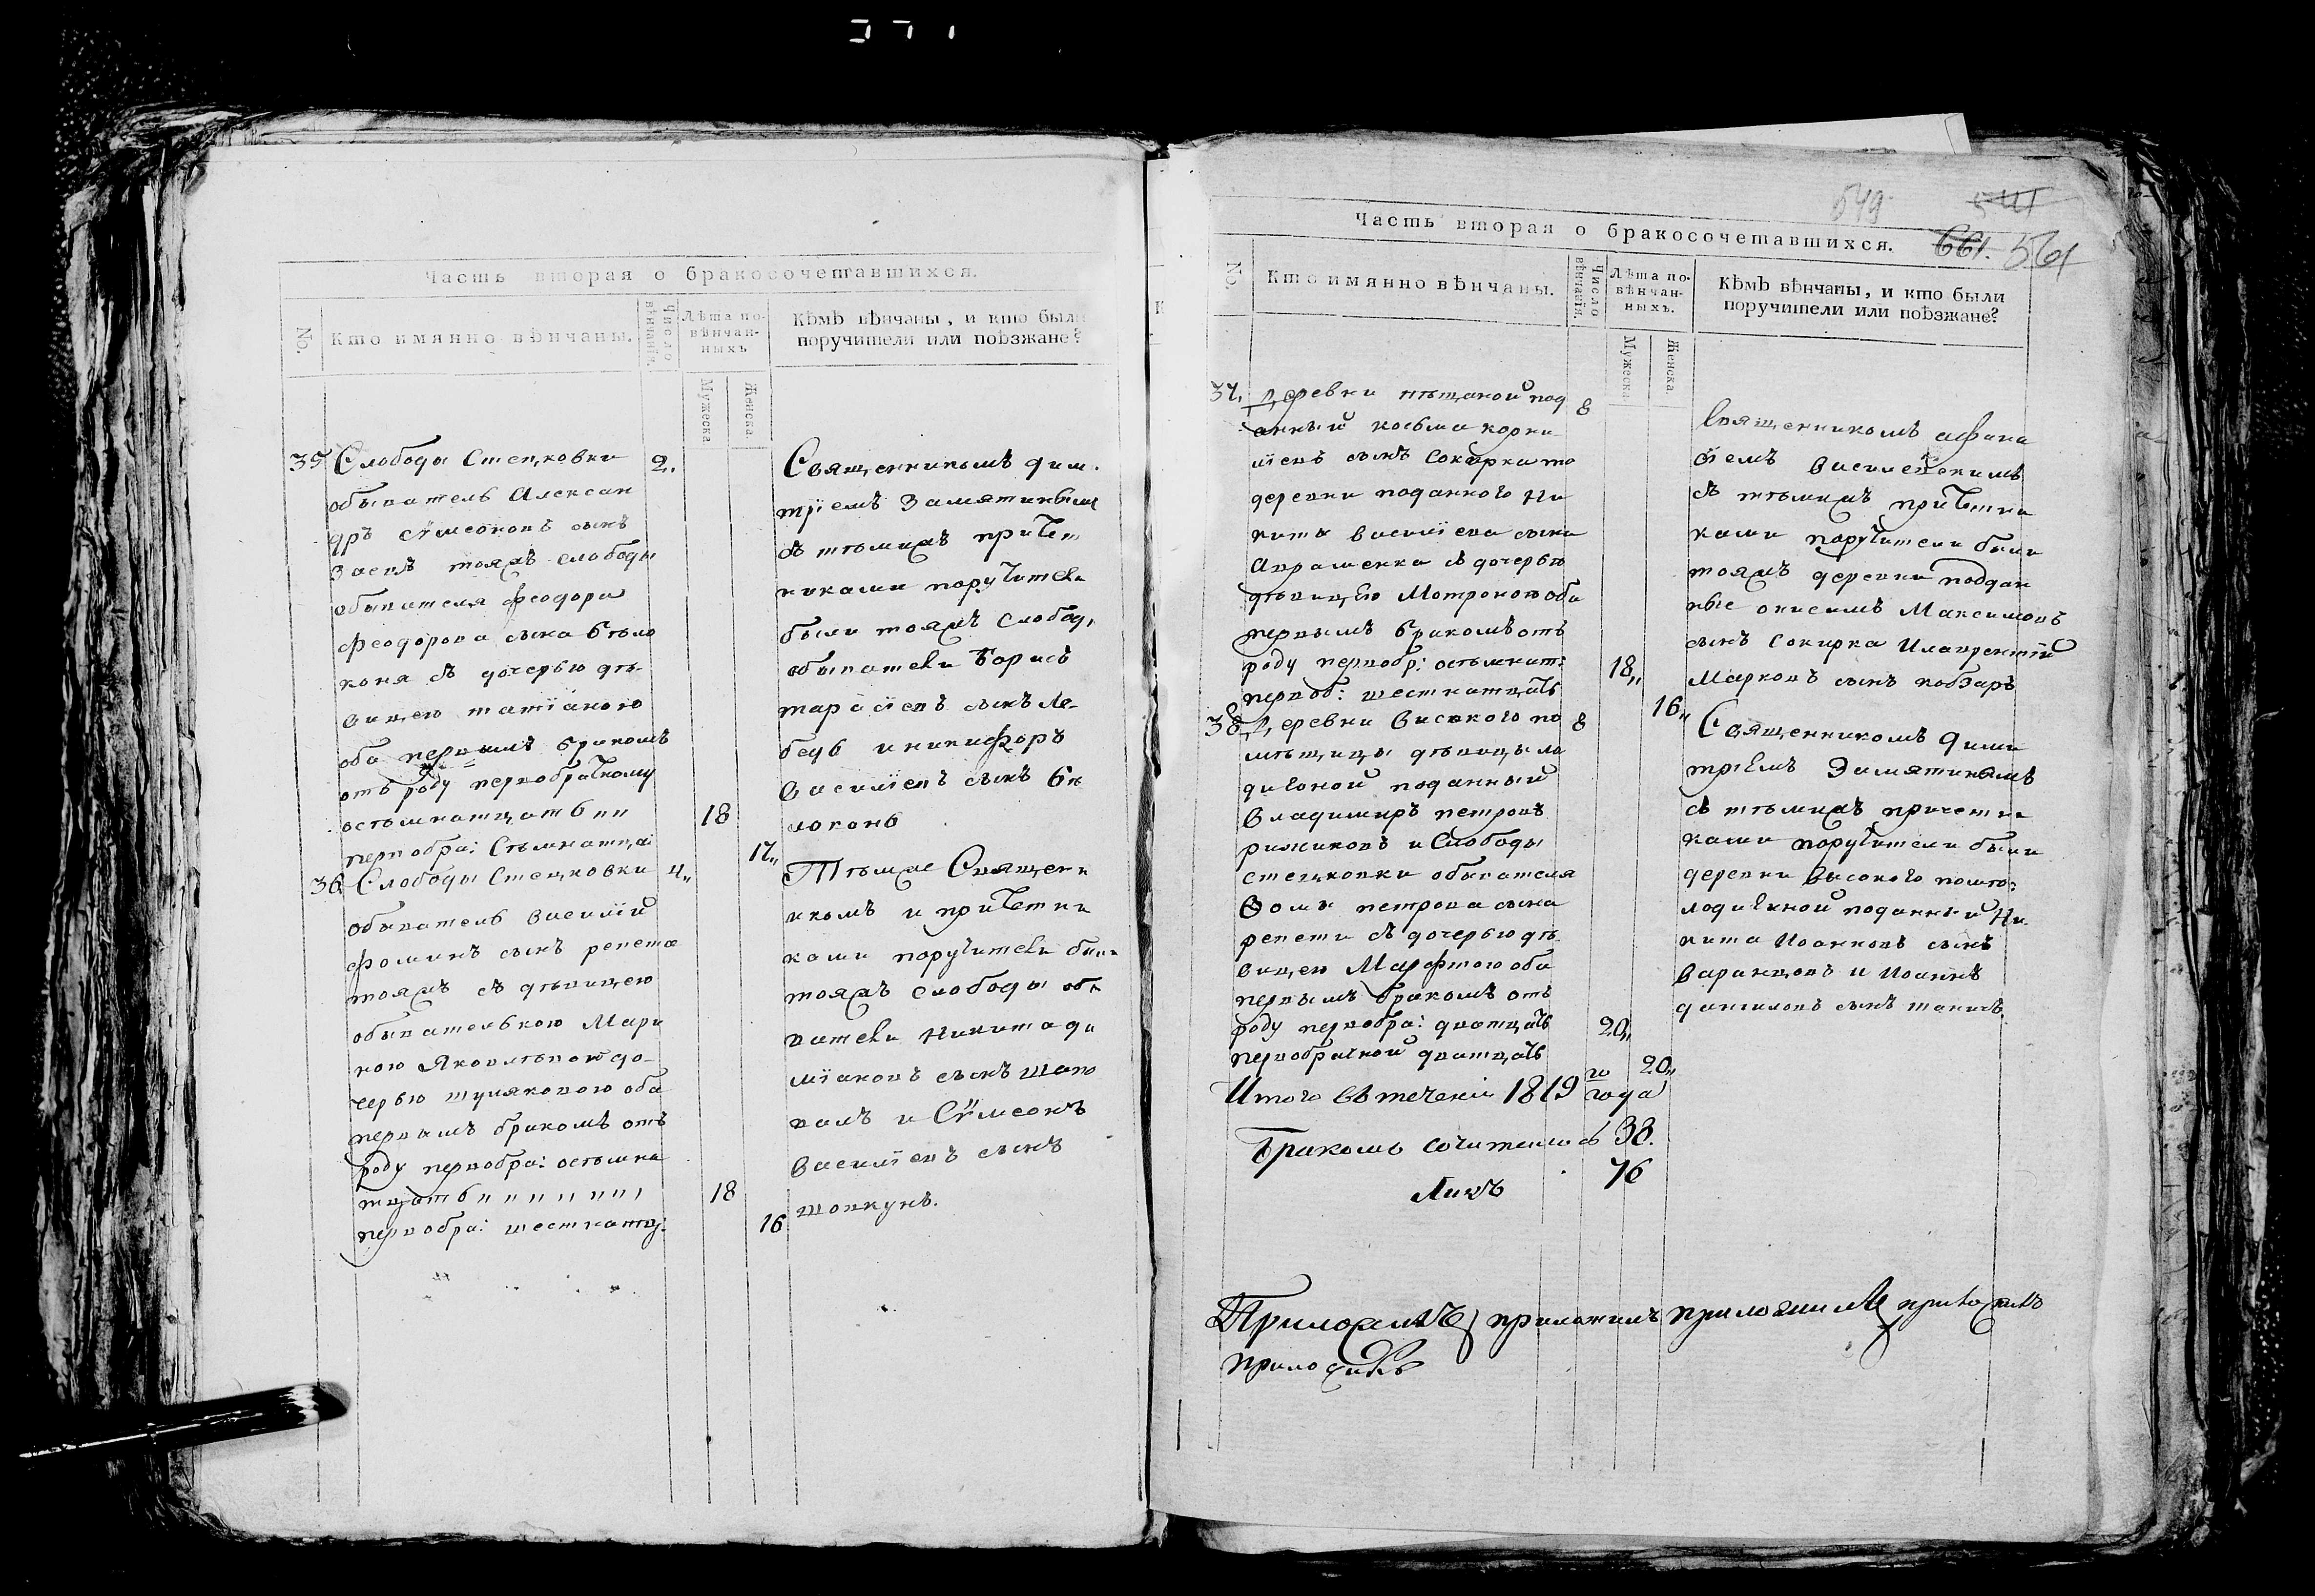 Часть вторая о бракосочетавшихся.
№
Кто имянно вѣнчаны.
Число вѣнчанія.
Лѣта по-
вѣнчан-
ныхъ
Мужеска
Женска
Кѣмъ вѣнчаны, и кто были
поручители или поѣзжане?
35 Слободы Стецковки 2,,
обыватель Алексан
дръ сѵмеоновъ сынъ
Заецъ тояжъ слободы
обывателя феодора
феодорова сына бѣло
коня съ дочерью дѣ-
вицею татіаною
оба первымъ бракомъ
отъ роду первобрачному
осѣмнатцать 18
первобра: Сѣмнатца: 17,,
Священникомъ дими
тріемъ Замятинымъ
съ тѣмижъ причет
никами поручители
были тояжъ слобод,
обыватели Борисъ
тарасіевъ сынъ Ле-
бедь и никифоръ
Василіевъ сынъ бѣ
локонь
36 Слободы Стецковки 4,,
обыватель Василій
фоминъ сынъ репета
тояжъ съ дѣвицею
обывателькою Мари
ною Яковлѣвою до-
черью шуляковою оба
первымъ бракомъ отъ
роду первобра: осѣмна
тцать 18
первобра: шестнатц: 16
Тѣмже Священ
икомъ и причетни
ками поручители были
тояжъ слободы обы
ватели Никита да
міановъ сынъ Шапо
валъ и Сѵмеонъ
Василіевъ сынъ
шовкунъ.
549
661. 561
Часть вторая о бракосочетавшихся.
№
Кто имянно вѣнчаны.
Число вѣнчанія.
Лѣта по-
вѣнчан-
ныхъ.
Мужеска
Женска
Кѣмъ вѣнчаны, и кто были
поручители или поѣзжане?
37, Деревни пѣщаной под 8
анный косьма корни
ліевъ сынъ Сокирка то
деревни поданного Ни
киты василіева сына
Аврашенка съ дочерью
дѣвицею Мотроною оба
первымъ бракомъ отъ
роду первобр: осѣмнат: 18,,
первоб: шестнатцать 16,,
Священникомъ афана
сіемъ Василевскимъ
съ тѣмижъ причетни
ками поручители были
тояжъ деревни поддан
ные анисимъ Максимовъ
сынъ Сокирка и лаврентій
Марковъ сынъ кобзарь
38 Деревни Висѣкого по 8
мѣщицы дѣвицы ло
диевной поданный
Владимиръ петровъ
рижиковъ и Слободы
стецковки обывателя
Ѳомы петрова сына
репети съ дочерью дѣ-
вицею Марфтою оба
первымъ бракомъ отъ
роду первобра: дватцать 20,,
первобрачной дватцать 20,,
Священникомъ Дими
тріемъ Замятинымъ
съ тѣмижъ причетни
ками поручители были
деревни Высокого помѣ:
лодиевной поданный Ни
кита Иоанновъ сынъ
Варавцовъ и Иоаннъ
даниловъ сынъ
Итого въ теченіи 1819 го года
Бракомъ сочитались 38.
Лицъ 76